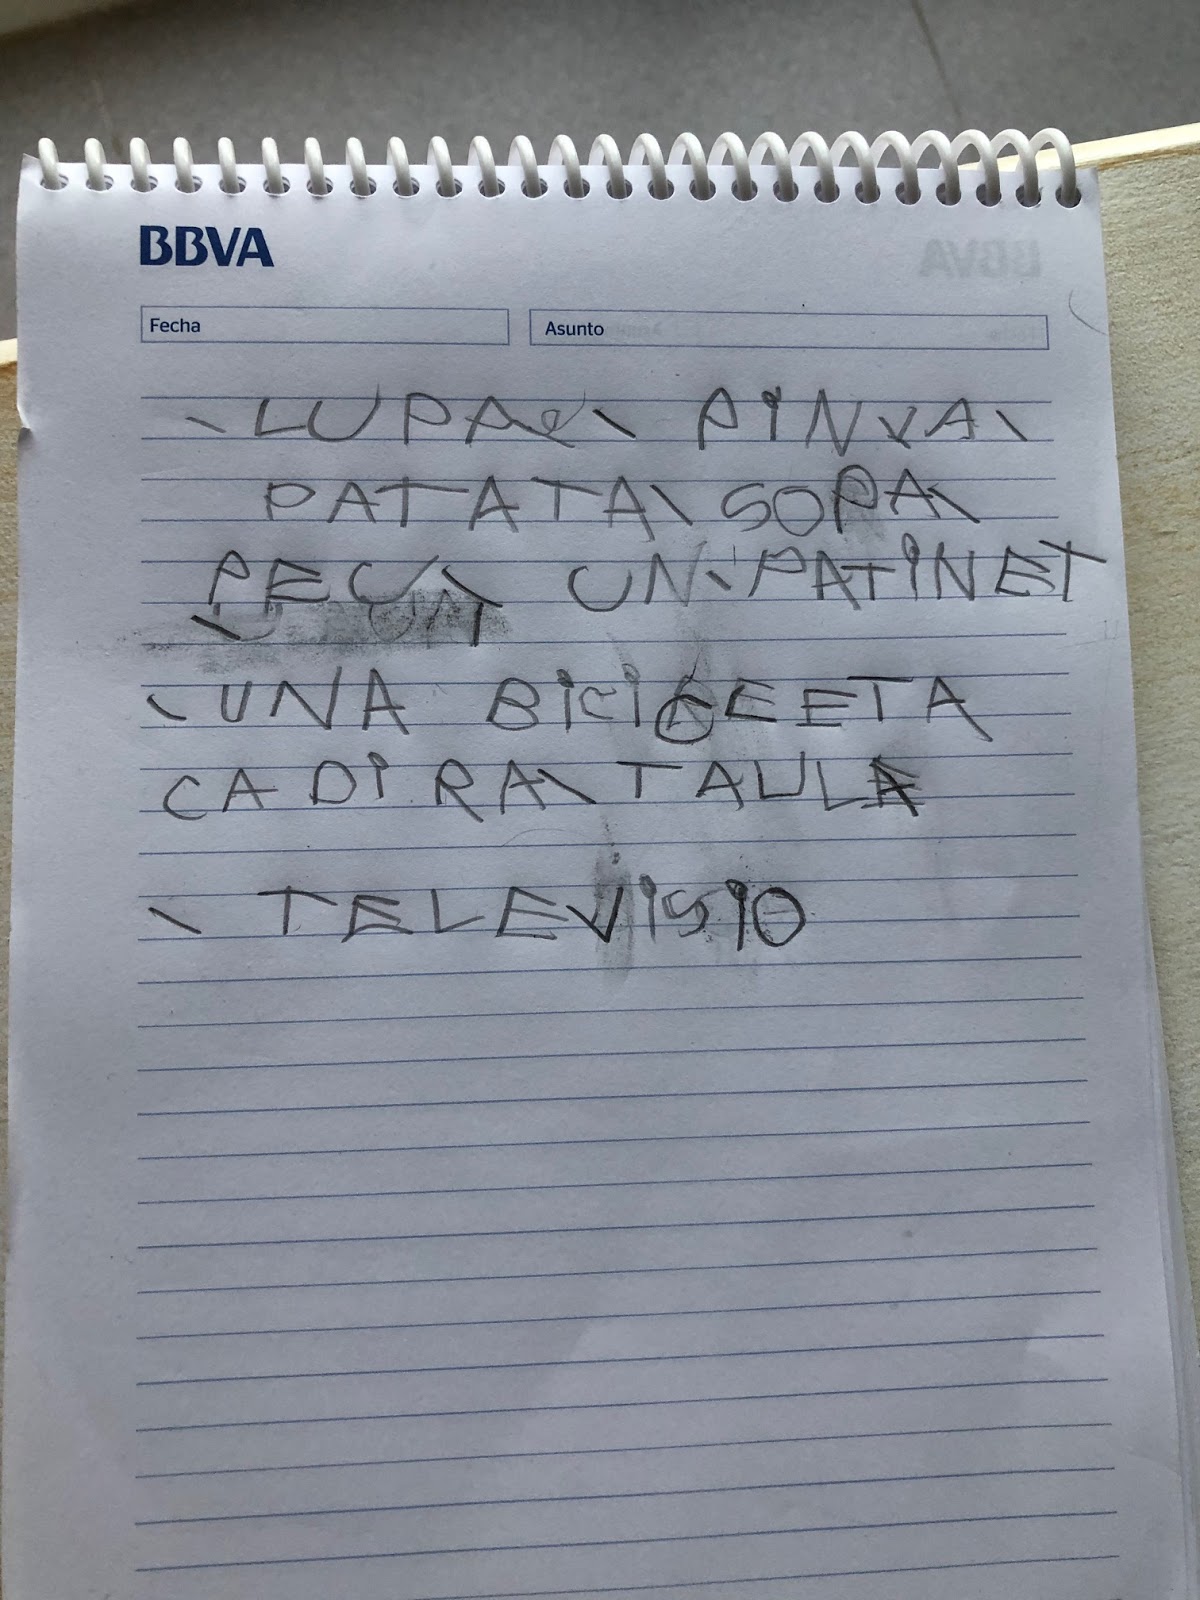 BBVA
Fecha Asunto
\ LUPA \ PINYA \
PATATA \ SOPA \
PEU \ UN \ PATINET
\ UNA BICICLEETA
CADIRA \ TAULA
\ TELEVISIO